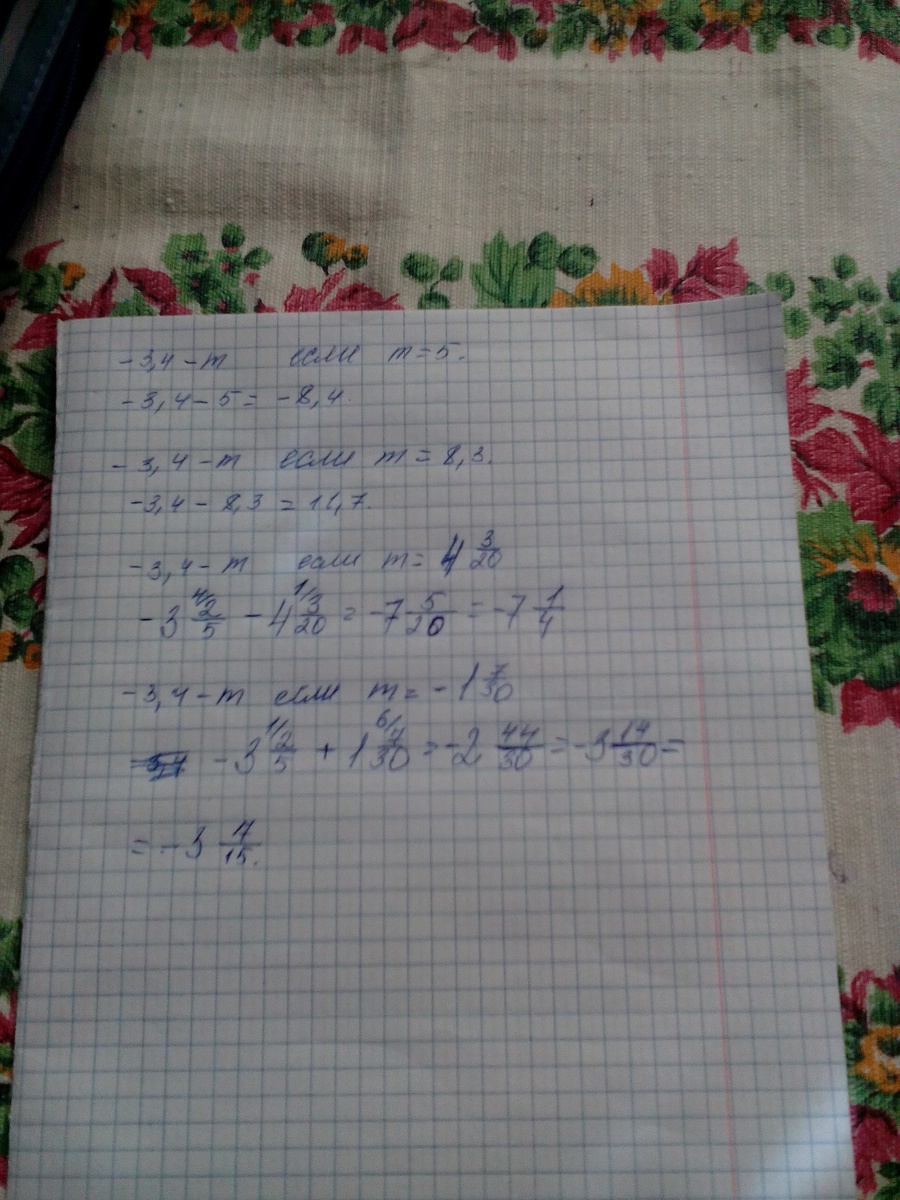 -3,4 - m если m = 5.
-3,4 - 5 = -8,4.
-3,4 - m если m = 8,3.
-3,4 - 8,3 = 11,7.
-3,4 - m если m = 4 3/20
-3 4/ 2/5 - 4 1/ 3/20 = -7 5/20 = -7 1/4
-3,4 - m если m = -1 7/30
-3 1/ 2/5 + 1 6/ 7/30 = -2 44/30 = -3 14/30 =
= -3 7/15.